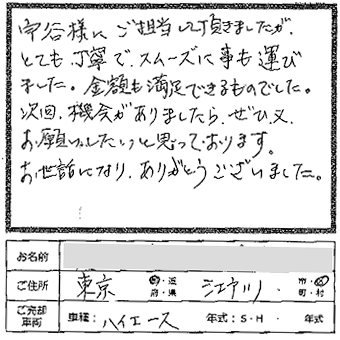 守谷様にご担当して頂きましたが、
とても丁寧で、スムーズに事も運び
ました。金額も満足できるものでした。
次回、機会がありましたら、ぜひ又、
お願いしたいと思っております。
お世話になり、ありがとうございました。
お名前
ご住所 東京 都・道 府・県 江戸川 市・区 町・村
ご売却車両 車種：ハイエース 年式：S・H ． 年式